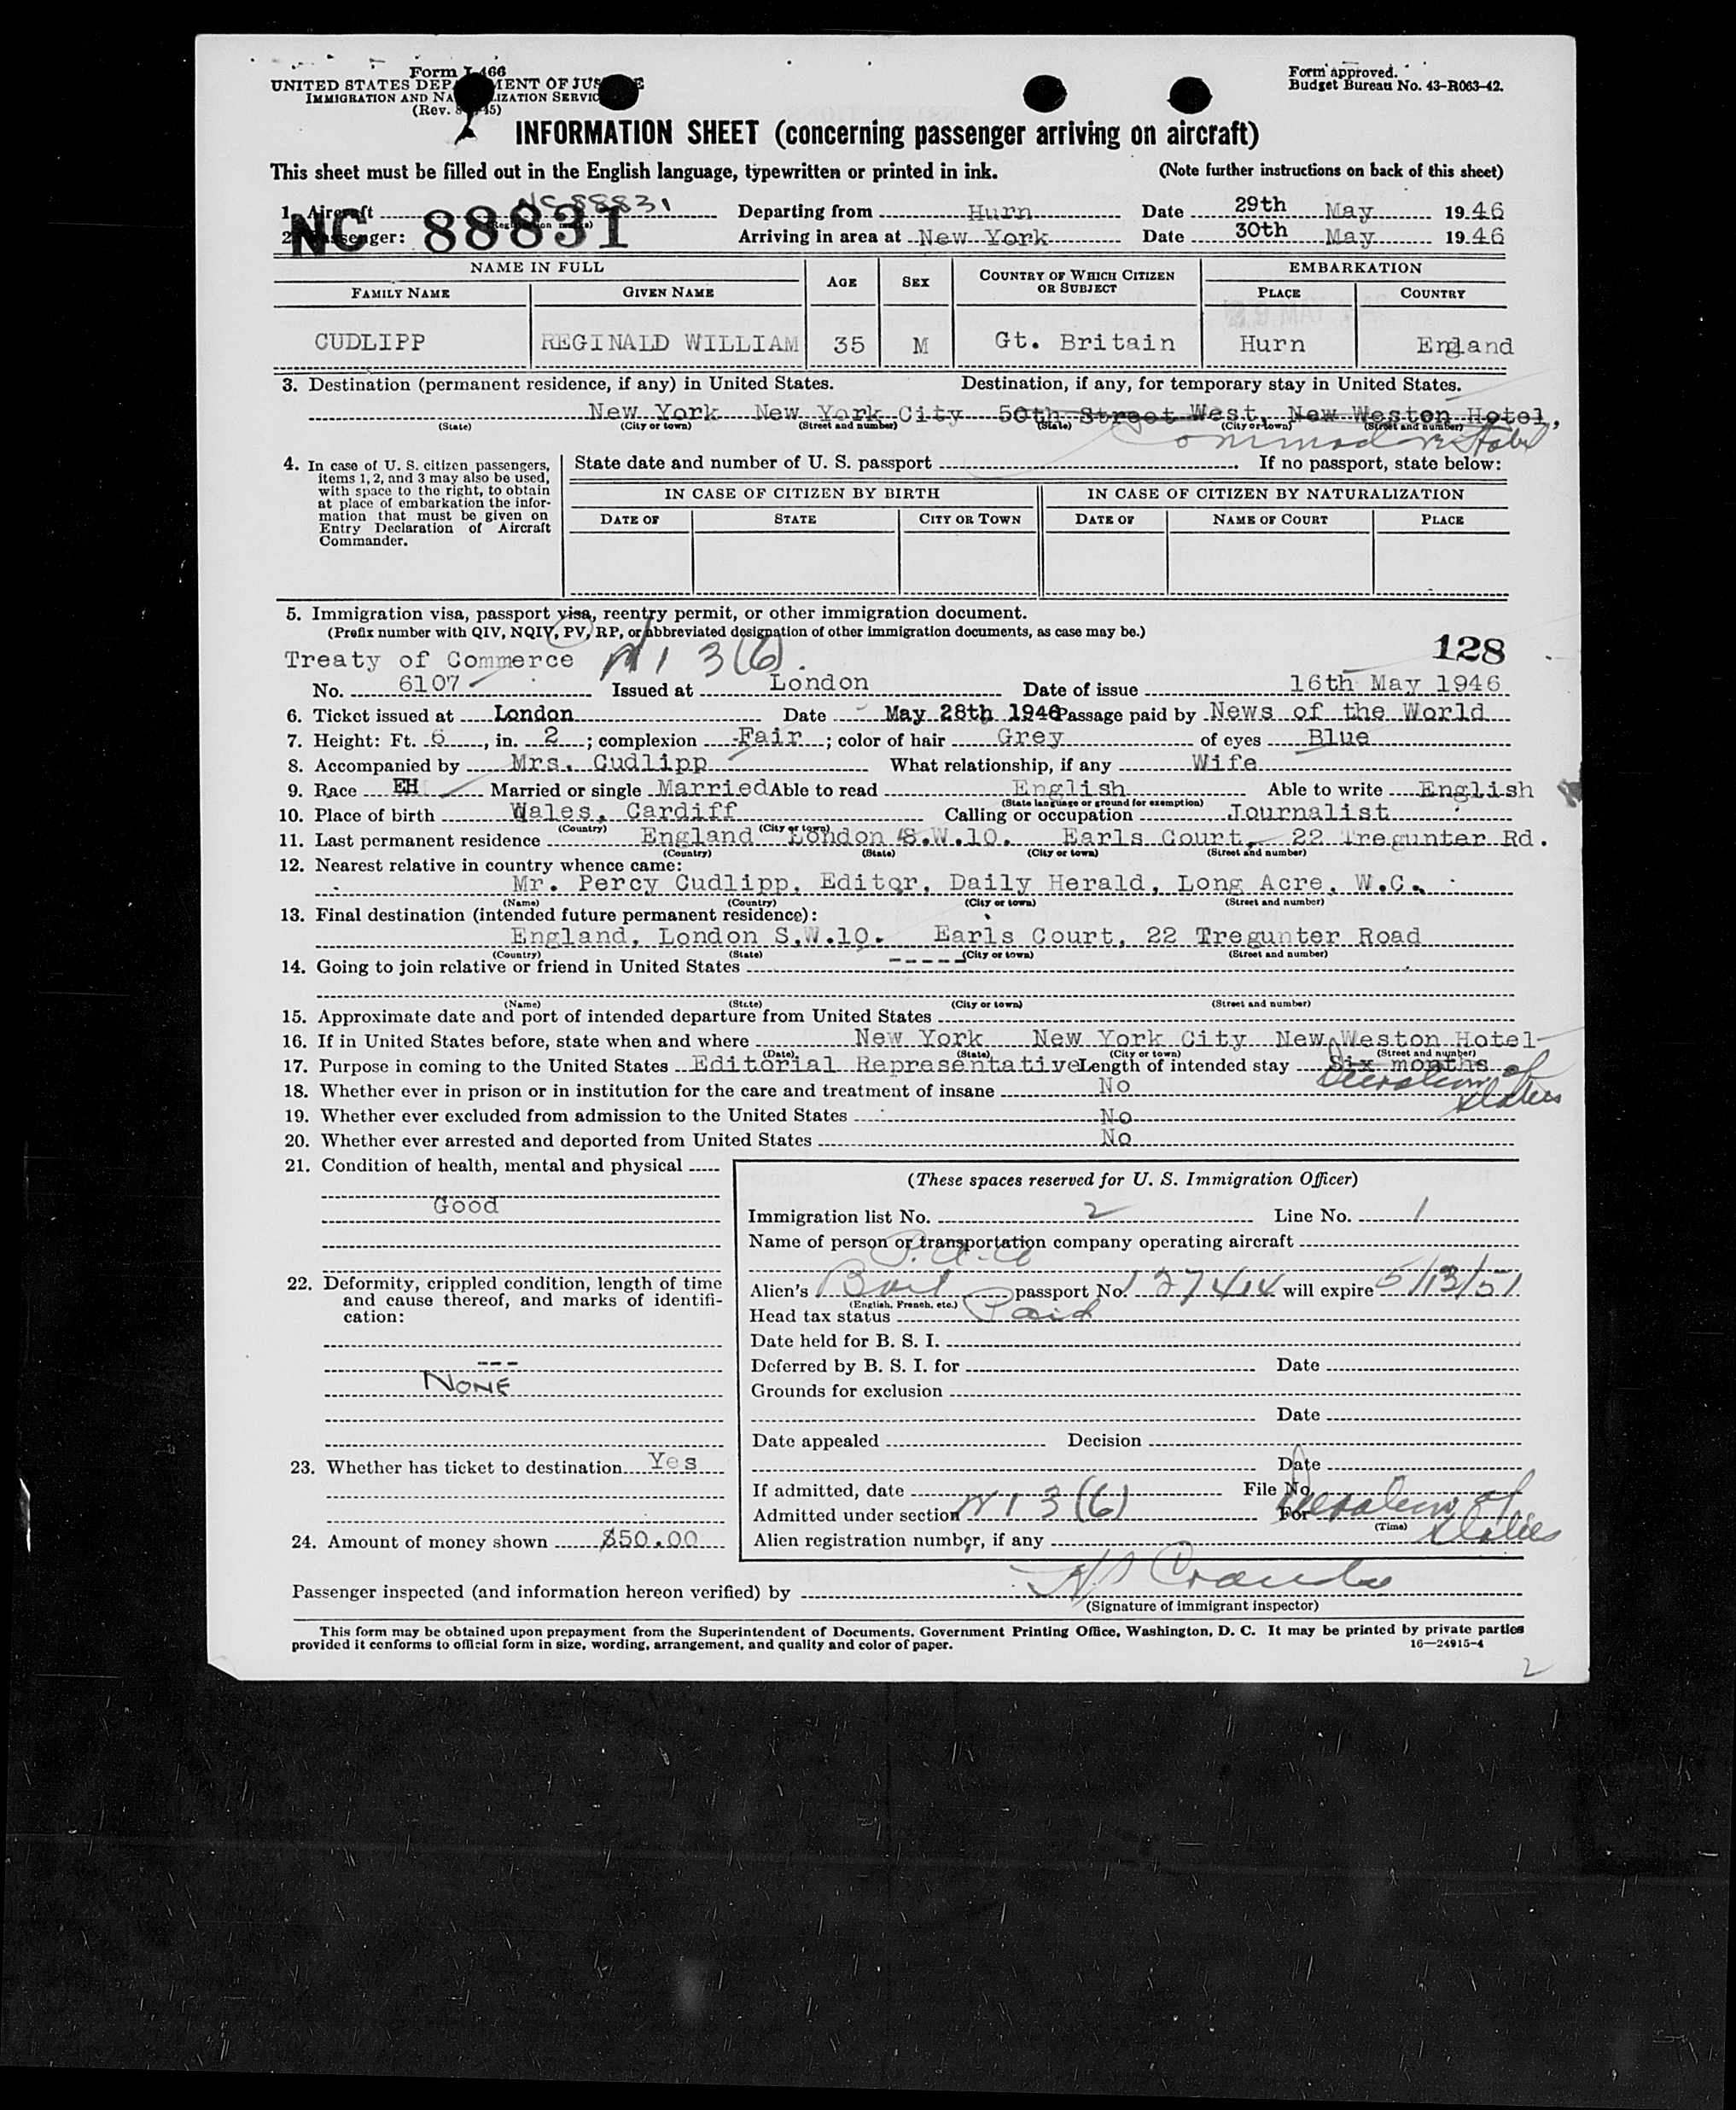 Form I-466
UNITED STATES DEPARTMENT OF JUSTICE
IMMIGRATION AND NATURALIZATION SERVICE
(Rev. 45)
Form approved.
Budget Bureau No. 43-R063-42.
INFORMATION SHEET (concerning passenger arriving on aircraft)
This sheet must be filled out in the English language, typewritten or printed in ink. (Note further instructions on back of this sheet)
1. Aircraft NC 88831 Departing from Hurn Date 29th May 1946
NC 88831
2. Passenger: Arriving in area at New York Date 30th May 1946
NAME IN FULL AGE SEX COUNTRY OF WHICH CITIZEN OR SUBJECT EMBARKATION
FAMILY NAME GIVEN NAME PLACE COUNTRY
CUDLIPP REGINALD WILLIAM 35 M Gt. Britain Hurn England
3. Destination (permanent residence, if any) in United States. Destination, if any, for temporary stay in United States.
New York New York City 50th Street West, New Weston Hotel,
(State) (City or town) (Street and number) (State) (City or town) (Street and number)
Commodore Hotel
4. In case of U. S. citizen passengers, items 1, 2, and 3 may also be used, with space to the right, to obtain at place of embarkation the information that must be given on Entry Declaration of Aircraft Commander.
State date and number of U. S. passport . If no passport, state below:
IN CASE OF CITIZEN BY BIRTH IN CASE OF CITIZEN BY NATURALIZATION
DATE OF STATE CITY OR TOWN DATE OF NAME OF COURT PLACE
5. Immigration visa, passport visa, reentry permit, or other immigration document.
(Prefix number with QIV, NQIV, PV, RP, or abbreviated designation of other immigration documents, as case may be.)
128
Treaty of Commerce 3(6)
No. 6107 Issued at London Date of issue 16th May 1946
6. Ticket issued at London Date May 28th 1946 Passage paid by News of the World
7. Height: Ft. 6, in. 2; complexion Fair; color of hair Grey of eyes Blue
8. Accompanied by Mrs. Cudlipp What relationship, if any Wife
9. Race EH Married or single Married Able to read English Able to write English
(State language or ground for exemption)
10. Place of birth Wales, Cardiff Calling or occupation Journalist
(Country) (City or town)
11. Last permanent residence England London S.W.10. Earls Court, 22 Tregunter Rd.
(Country) (State) (City or town) (Street and number)
12. Nearest relative in country whence came:
Mr. Percy Cudlipp, Editor, Daily Herald, Long Acre, W.C.
(Name) (Country) (City or town) (Street and number)
13. Final destination (intended future permanent residence):
England, London S.W.10. Earls Court, 22 Tregunter Road
(Country) (State) (City or town) (Street and number)
14. Going to join relative or friend in United States -----
(Name) (State) (City or town) (Street and number)
15. Approximate date and port of intended departure from United States
16. If in United States before, state when and where New York New York City New Weston Hotel
(Date) (State) (City or town) (Street and number)
17. Purpose in coming to the United States Editorial Representative Length of intended stay Six months
Duration of Status
18. Whether ever in prison or in institution for the care and treatment of insane No
19. Whether ever excluded from admission to the United States No
20. Whether ever arrested and deported from United States No
21. Condition of health, mental and physical
Good
22. Deformity, crippled condition, length of time and cause thereof, and marks of identification:
---
NONE
23. Whether has ticket to destination Yes
24. Amount of money shown $50.00
(These spaces reserved for U. S. Immigration Officer)
Immigration list No. 2 Line No. 1
Name of person or transportation company operating aircraft
P.A.A
Alien's Brit passport No. 127414 will expire 5/13/51
(English, French, etc.)
Head tax status Paid
Date held for B. S. I.
Deferred by B. S. I. for Date
Grounds for exclusion
Date
Date appealed Decision
Date
If admitted, date File No.
Admitted under section 3(6) For Duration of Status
(Time)
Alien registration number, if any
Passenger inspected (and information hereon verified) by
(Signature of immigrant inspector)
This form may be obtained upon prepayment from the Superintendent of Documents, Government Printing Office, Washington, D. C. It may be printed by private parties
provided it conforms to official form in size, wording, arrangement, and quality and color of paper. 16—24915-4
2